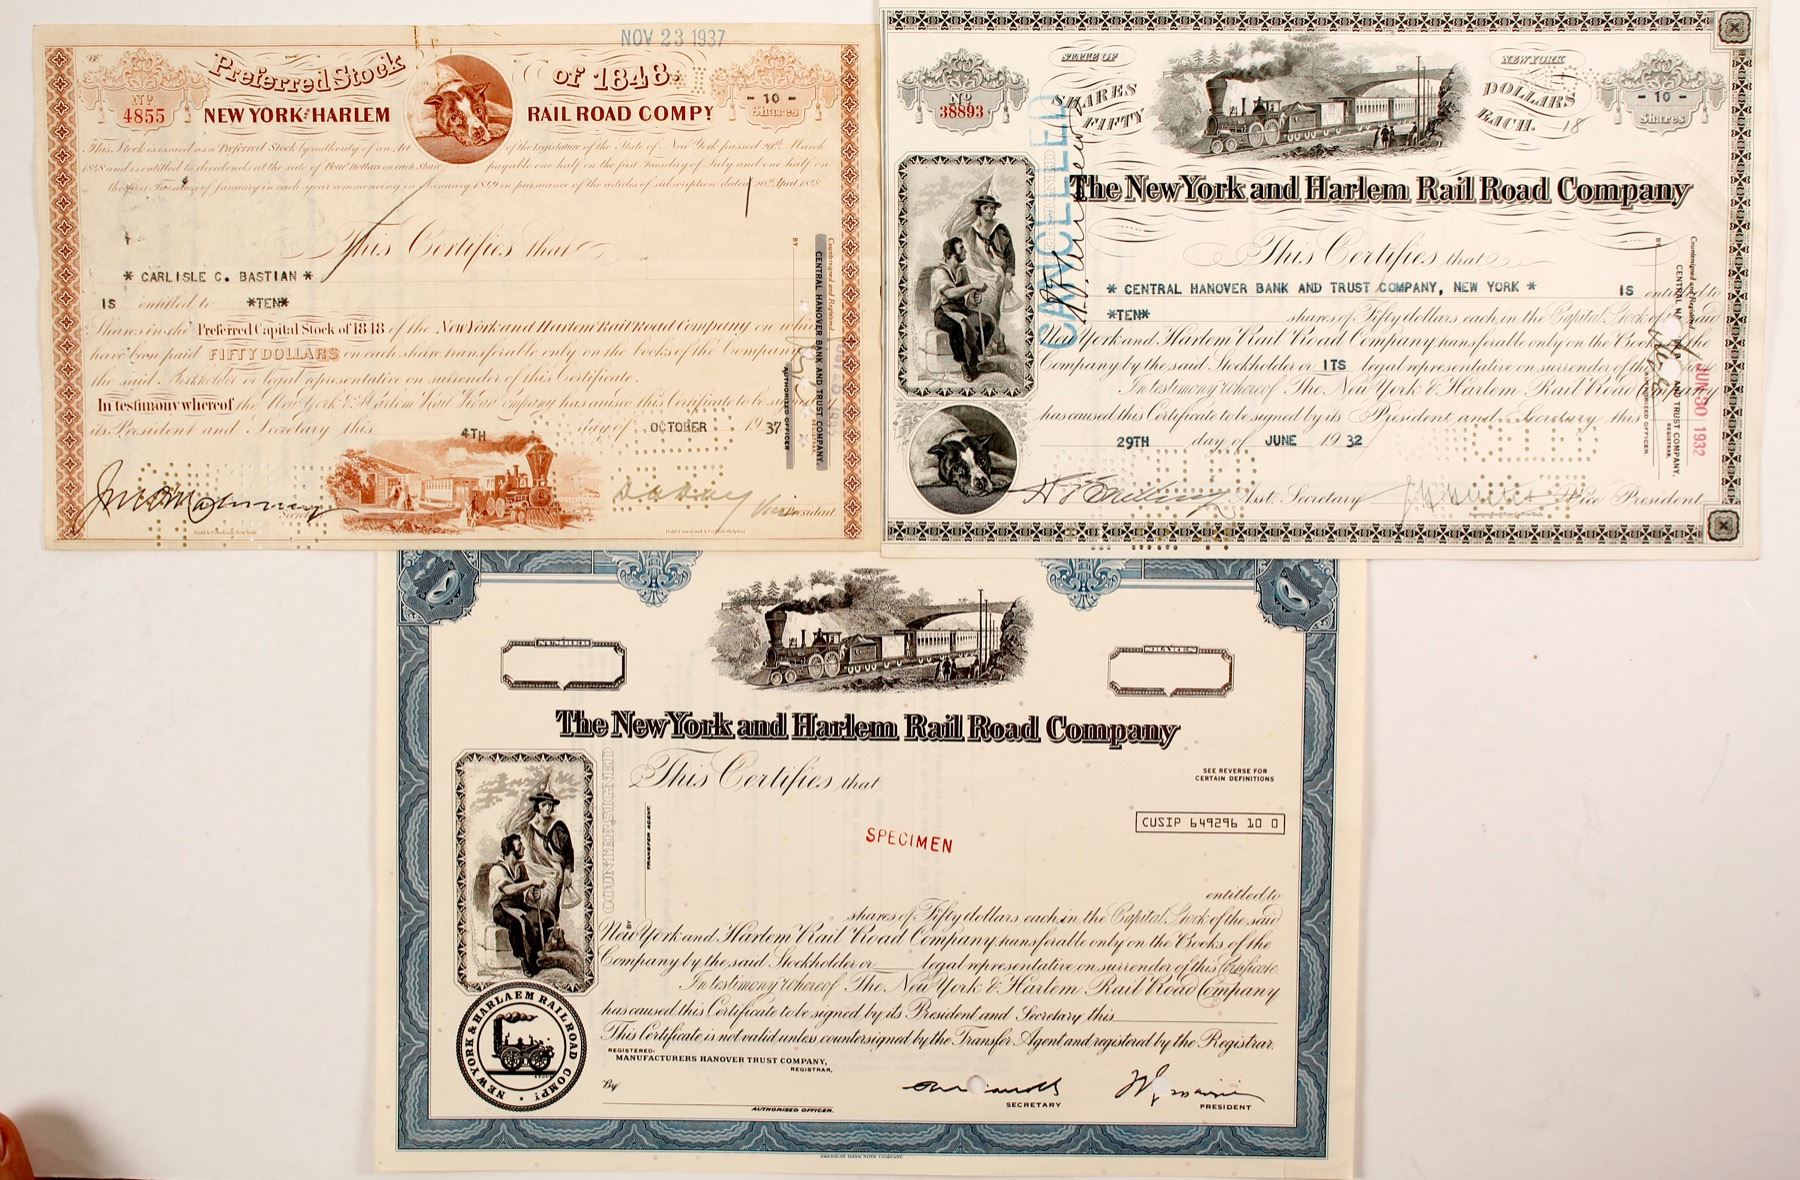 NOV 23 1937
Preferred Stock of 1848
No 4855
- 10 - Shares
NEW YORK AND HARLEM RAIL ROAD COMPY
This Stock is issued as a Preferred Stock by authority of an Act of the Legislature of the State of New York passed 29th March
1848 and is entitled to dividends at the rate of Four Dollars on each Share payable one half on the first Tuesday of July and one half on
the first Tuesday of January in each year commencing in January 1849 in pursuance of the articles of subscription dated 20th April 1848
This Certifies that
* CARLISLE C. BASTIAN *
IS entitled to *TEN*
Shares in the Preferred Capital Stock of 1848 of the New York and Harlem Rail Road Company on which
have been paid FIFTY DOLLARS on each share transferable only on the books of the Company by
the said Stockholder or legal representative on surrender of this Certificate.
In testimony whereof the New York & Harlem Rail Road Company has caused this Certificate to be signed by
its President and Secretary this 4TH day of OCTOBER 1937
Vice President
Countersigned and Registered
CENTRAL HANOVER BANK AND TRUST COMPANY,
BY
AUTHORIZED OFFICER
STATE OF NEW YORK
No 38893
SHARES FIFTY DOLLARS EACH.
- 10 - Shares
CANCELLED
The New York and Harlem Rail Road Company
This Certifies that
* CENTRAL HANOVER BANK AND TRUST COMPANY, NEW YORK * IS entitled to
*TEN* shares of Fifty dollars each, in the Capital Stock of the said
New York and Harlem Rail Road Company, transferable only on the Books of the
Company by the said Stockholder or ITS legal representative, on surrender of this Certificate.
In testimony whereof The New York & Harlem Rail Road Company
has caused this Certificate to be signed by its President and Secretary this
29TH day of JUNE 1932
Asst. Secretary Vice President
Countersigned and Registered
CENTRAL HANOVER BANK AND TRUST COMPANY,
REGISTRAR.
BY
AUTHORIZED OFFICER.
JUN 30 1932
NUMBER
SHARES
The New York and Harlem Rail Road Company
This Certifies that
SEE REVERSE FOR
CERTAIN DEFINITIONS
CUSIP 649296 10 0
SPECIMEN
COUNTERSIGNED
TRANSFER AGENT.
BY
entitled to
shares of Fifty dollars each, in the Capital Stock of the said
New York and Harlem Rail Road Company, transferable only on the Books of the
Company by the said Stockholder or legal representative, on surrender of this Certificate.
In testimony whereof The New York & Harlem Rail Road Company
has caused this Certificate to be signed by its President and Secretary, this
This Certificate is not valid unless countersigned by the Transfer Agent and registered by the Registrar.
NEW YORK & HARLAEM RAILROAD COMPY.
REGISTERED:
MANUFACTURERS HANOVER TRUST COMPANY,
REGISTRAR,
By
AUTHORIZED OFFICER.
SECRETARY
PRESIDENT
AMERICAN BANK NOTE COMPANY.